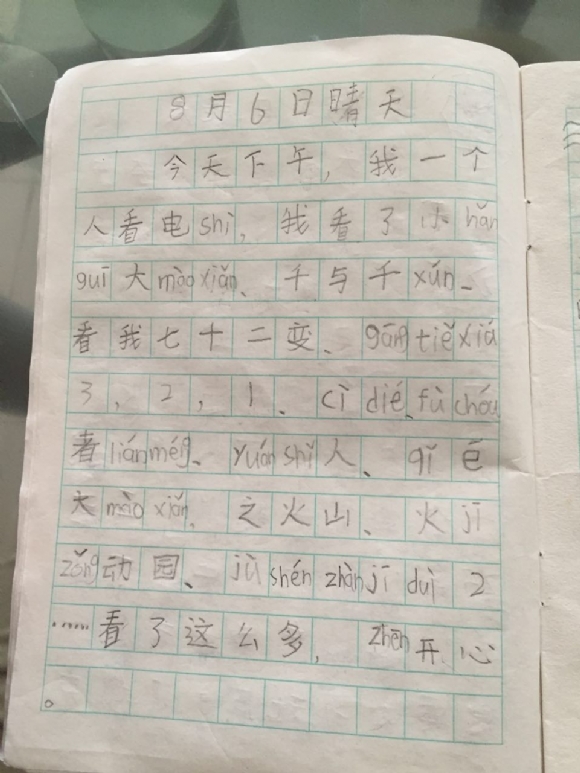 8月6日晴天
今天下午，我一个
人看电shì，我看了小hǎn
guī大mào xiǎn、千与千xún、
看我七十二变、gāng tiě xiá
3，2，1、cì dié、fù chóu
者lián méng、yuán shǐ人、qǐ é
大mào xiǎn、之火山、火jī
zǒng动园、jù shén zhàn jī duì 2
……看了这么多，zhēn开心
。